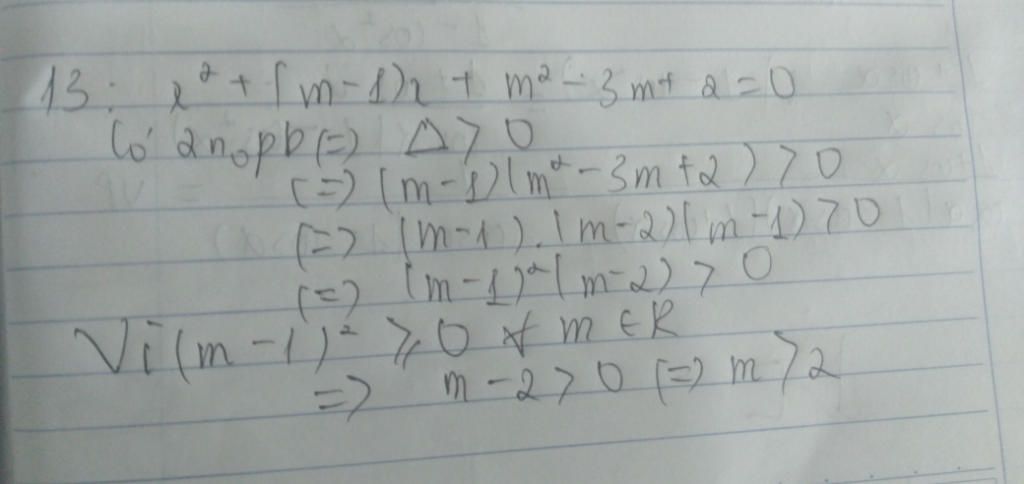 13: x² + (m-1)x + m² - 3m + 2 = 0
Có 2 nopb (=) Δ > 0
(=) (m-1)(m² - 3m + 2) > 0
(=) (m-1).(m-2)(m-1) > 0
(=) (m-1)²(m-2) > 0
Vì (m-1)² ≥ 0 ∀ m ∈ R
=> m-2 > 0 (=) m > 2